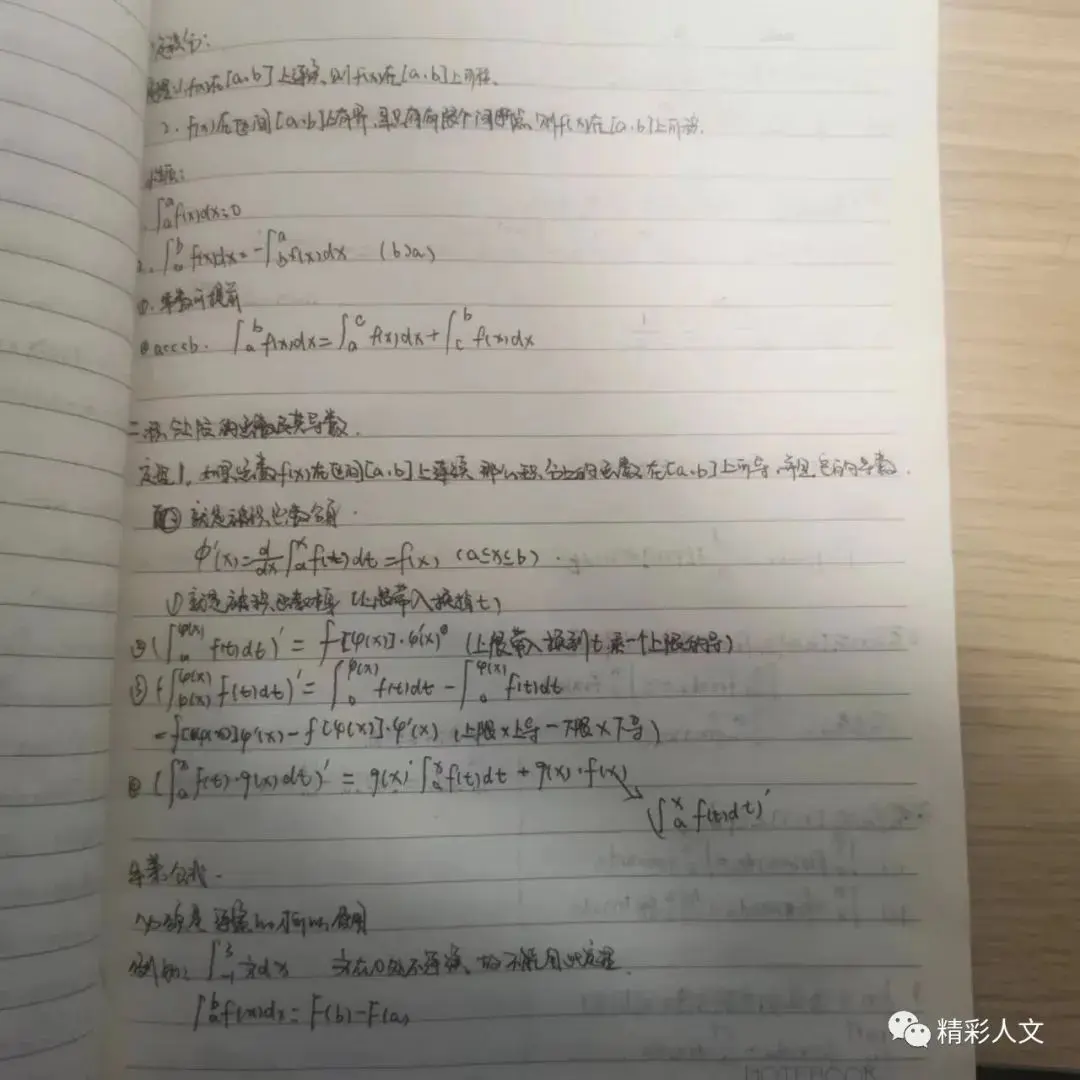 定积分:
定理1、f(x)在[a,b]上连续、则f(x)在[a,b]上可积.
2. f(x)在区间[a,b]上有界,且只有有限个间断点,则f(x)在[a,b]上可积.
性质:
∫ₐᵃf(x)dx=0
2. ∫ₐᵇ f(x)dx=-∫_b^a f(x)dx (b>a)
①.常数可提前
④a<c<b. ∫ₐᵇ f(x)dx=∫_a^c f(x)dx+∫_c^b f(x)dx
二.积分上限的函数及其导数.
定理1. 如果函数f(x)在区间[a,b]上连续 那么积分上限的函数在[a,b]上可导,并且它的导数.
就是被积函数本身.
Φ'(x)=d/dx ∫ₐˣ f(t)dt=f(x) (a≤x≤b).
①就是被积函数本身(上限带入换掉t)
②(∫_a^φ(x) f(t)dt)'= f[φ(x)]·φ'(x) (上限带入换到t,乘一个上限的导)
③(∫_b(x)^φ(x) f(t)dt)'=∫_0^φ(x) f(t)dt-∫_0^φ(x) f(t)dt
=f[φ(x)]φ'(x)-f[φ(x)]·φ'(x) (上限×上导-下限×下导)
④(∫ₐˣ f(t)·g(x)dt)'= g(x)'∫ₐˣ f(t)dt+g(x)·f(x)
(∫ₐˣ f(t)dt)'
牛莱公式.
必须是连续
例如: ∫₋₁³ dx 在0处不连续,故不能用此定理.
∫ₐᵇ f(x)dx=F(b)-F(a)
NOTEBOOK
精彩人文